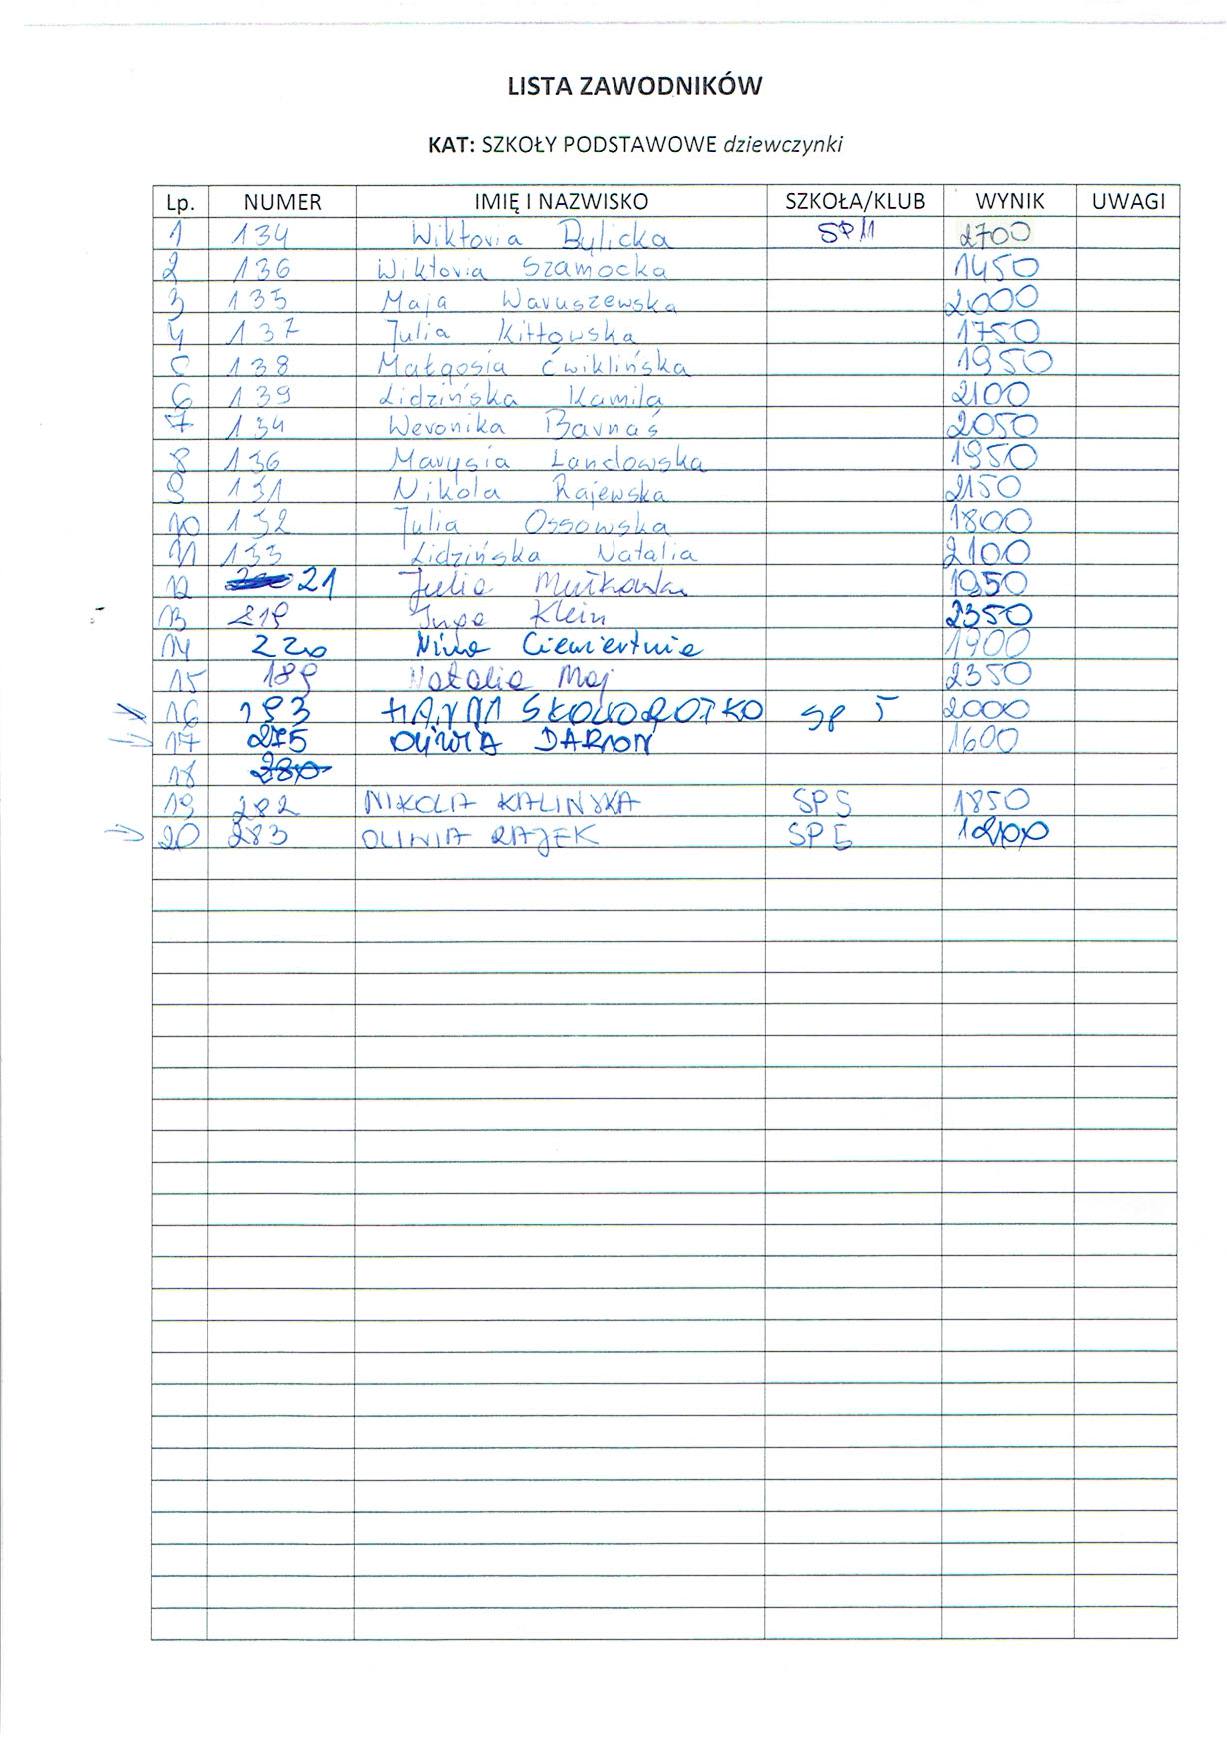 LISTA ZAWODNIKÓW
KAT: SZKOŁY PODSTAWOWE dziewczynki
Lp. NUMER IMIĘ I NAZWISKO SZKOŁA/KLUB WYNIK UWAGI
1 134 Wiktoria Bylicka SP11 2700
2 136 Wiktoria Szamocka 1450
3 135 Maja Waruszewska 2000
4 137 Julia Kittowska 1750
5 138 Małgosia Ćwiklińska 1950
6 139 Lidzińska Kamila 2100
7 134 Weronika Barnaś 2050
8 136 Marysia Landowska 1950
9 131 Nikola Rajewska 2150
10 132 Julia Ossowska 1800
11 133 Lidzińska Natalia 2100
12 21 Julia 1950
13 219 Inga Klein 2350
14 220 Nina Ciemiertnia 1900
15 189 Natalia Maj 2350
16 193 HANNA SKOWOROTKO SP 5 2000
17 275 OLIWIA DARMOŃ 1600
18 280
19 282 NIKOLA KALIŃSKA SP5 1850
20 283 OLIWIA RAJEK SP5